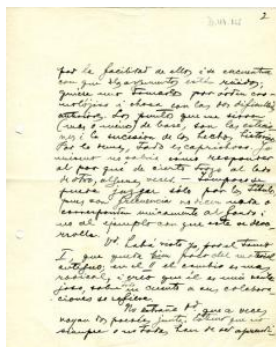 2.
por la facilidad de ellos i de
con que algunos están
quiere unir tomarlos por orden cro-
nológico i choca con las dos dificultades
anteriores. Los puntos que me sirven
(más o menos) de base, son las estacio-
nes i la sucesión de los hechos históricos
Por lo demás, todo es caprichoso. Yo
mismo no sabría cómo responder
al por qué de ciento trozo al lado
de otro, algunas veces — tampoco se
puede juzgar sólo por los títulos,
pues con frecuencia no dicen nada o
corresponden únicamente al fondo i
no al ejemplo con que éste se desa-
rrolla.
Vd. habrá visto ya, por el tomo
I, que queda bien poco del material
antiguo; en el II el cambio es más
radical, i creo que él es muy
joso, en cuanto a sus colabora
ciones se refiere.
No extrañe Vd. que a veces
vayan dos poesías juntas,
siempre o no todas, han de ser aprendi